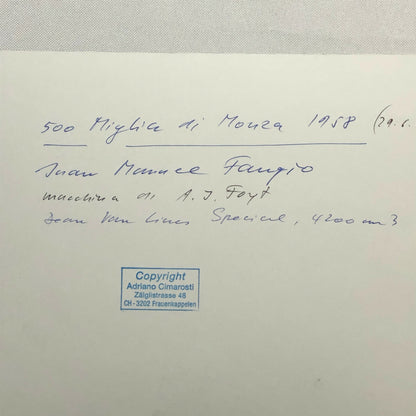 500 Miglia di Monza 1958 (29.6.
Juan Manuel Fangio
macchina di A. J. Foyt
Dean Van Lines Special, 4200 cm3
Copyright
Adriano Cimarosti
Zälglistrasse 48
CH-3202 Frauenkappelen